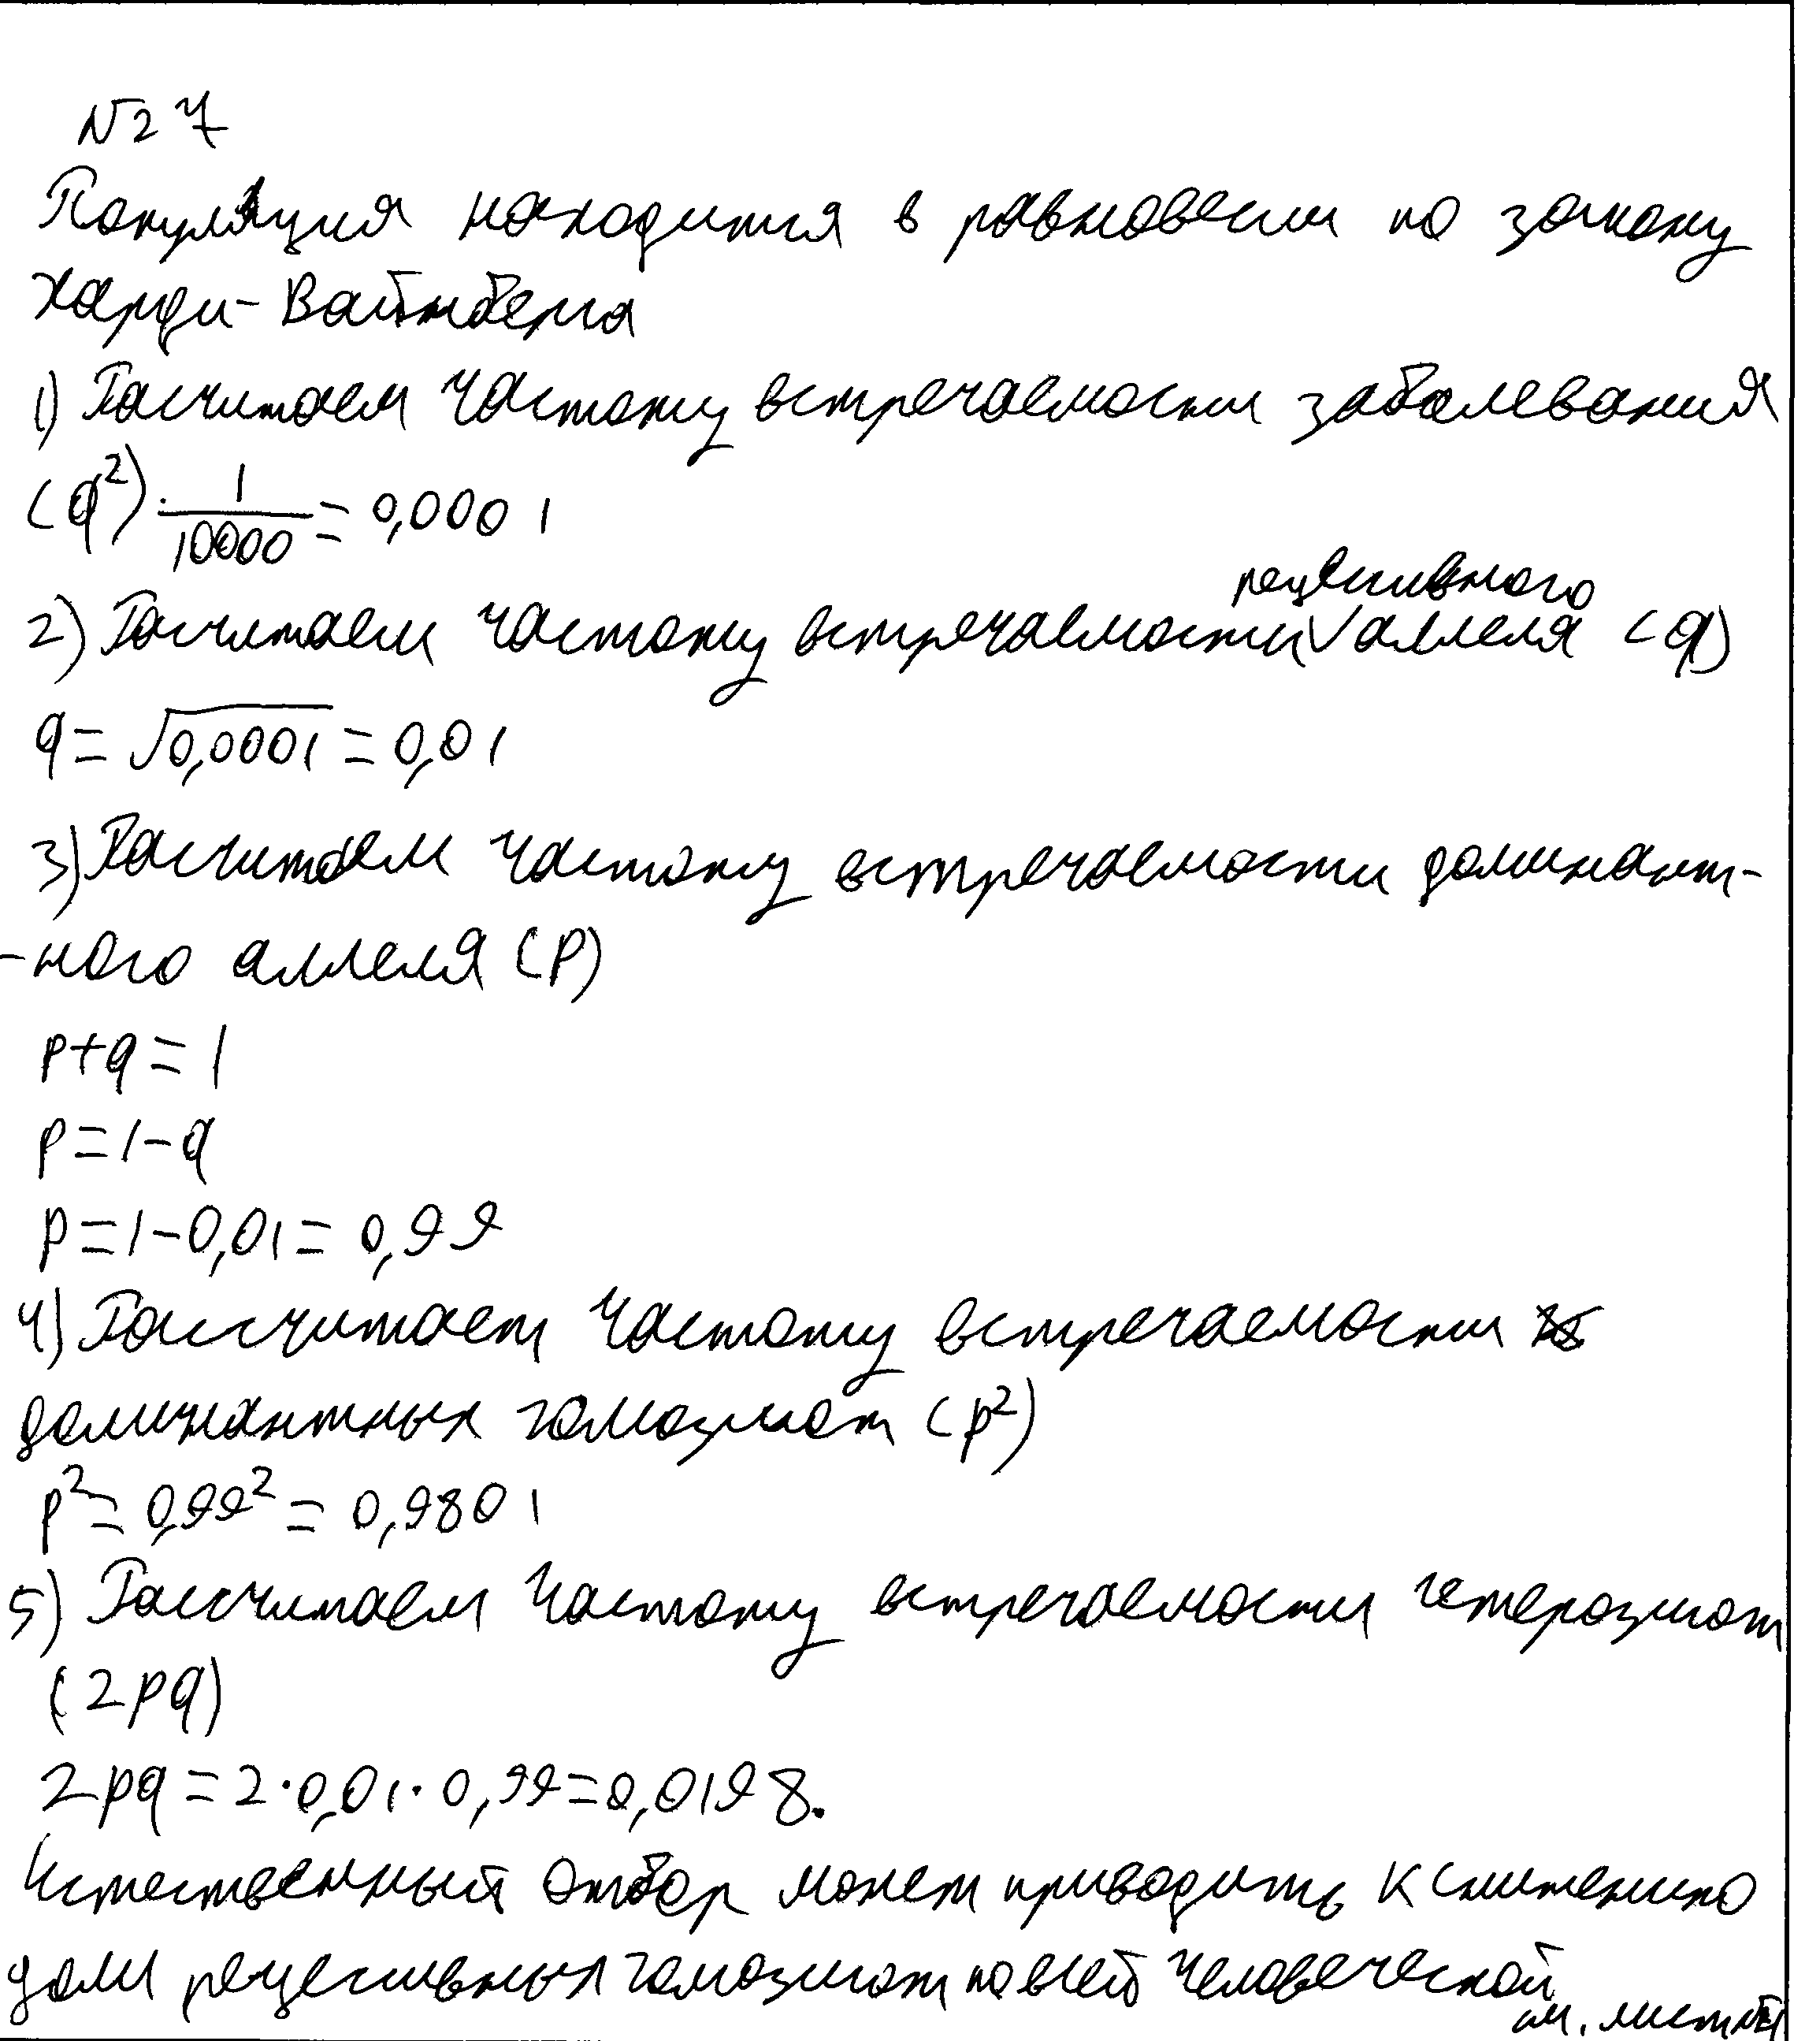 №27
Популяция находится в равновесии по закону
Харди-Вайнберга
1) Расчитаем частоту встречаемости заболевания
(q²): 1/10000 = 0,0001
2) Расчитаем частоту встречаемости рецессивного аллеля (q)
q = √0,0001 = 0,01
3) Расчитаем частоту встречаемости доминант-
-ного аллеля (p)
p+q=1
p=1-q
p=1-0,01=0,99
4) Рассчитаем частоту встречаемости
доминантных гомозигот (p²)
p²=0,99²=0,9801
5) Рассчитаем частоту встречаемости гетерозигот
(2pq)
2pq=2·0,01·0,99=0,0198.
Естественный отбор может приводить к снижению
доли рецессивных гомозигот по всей человеческой
см. лист